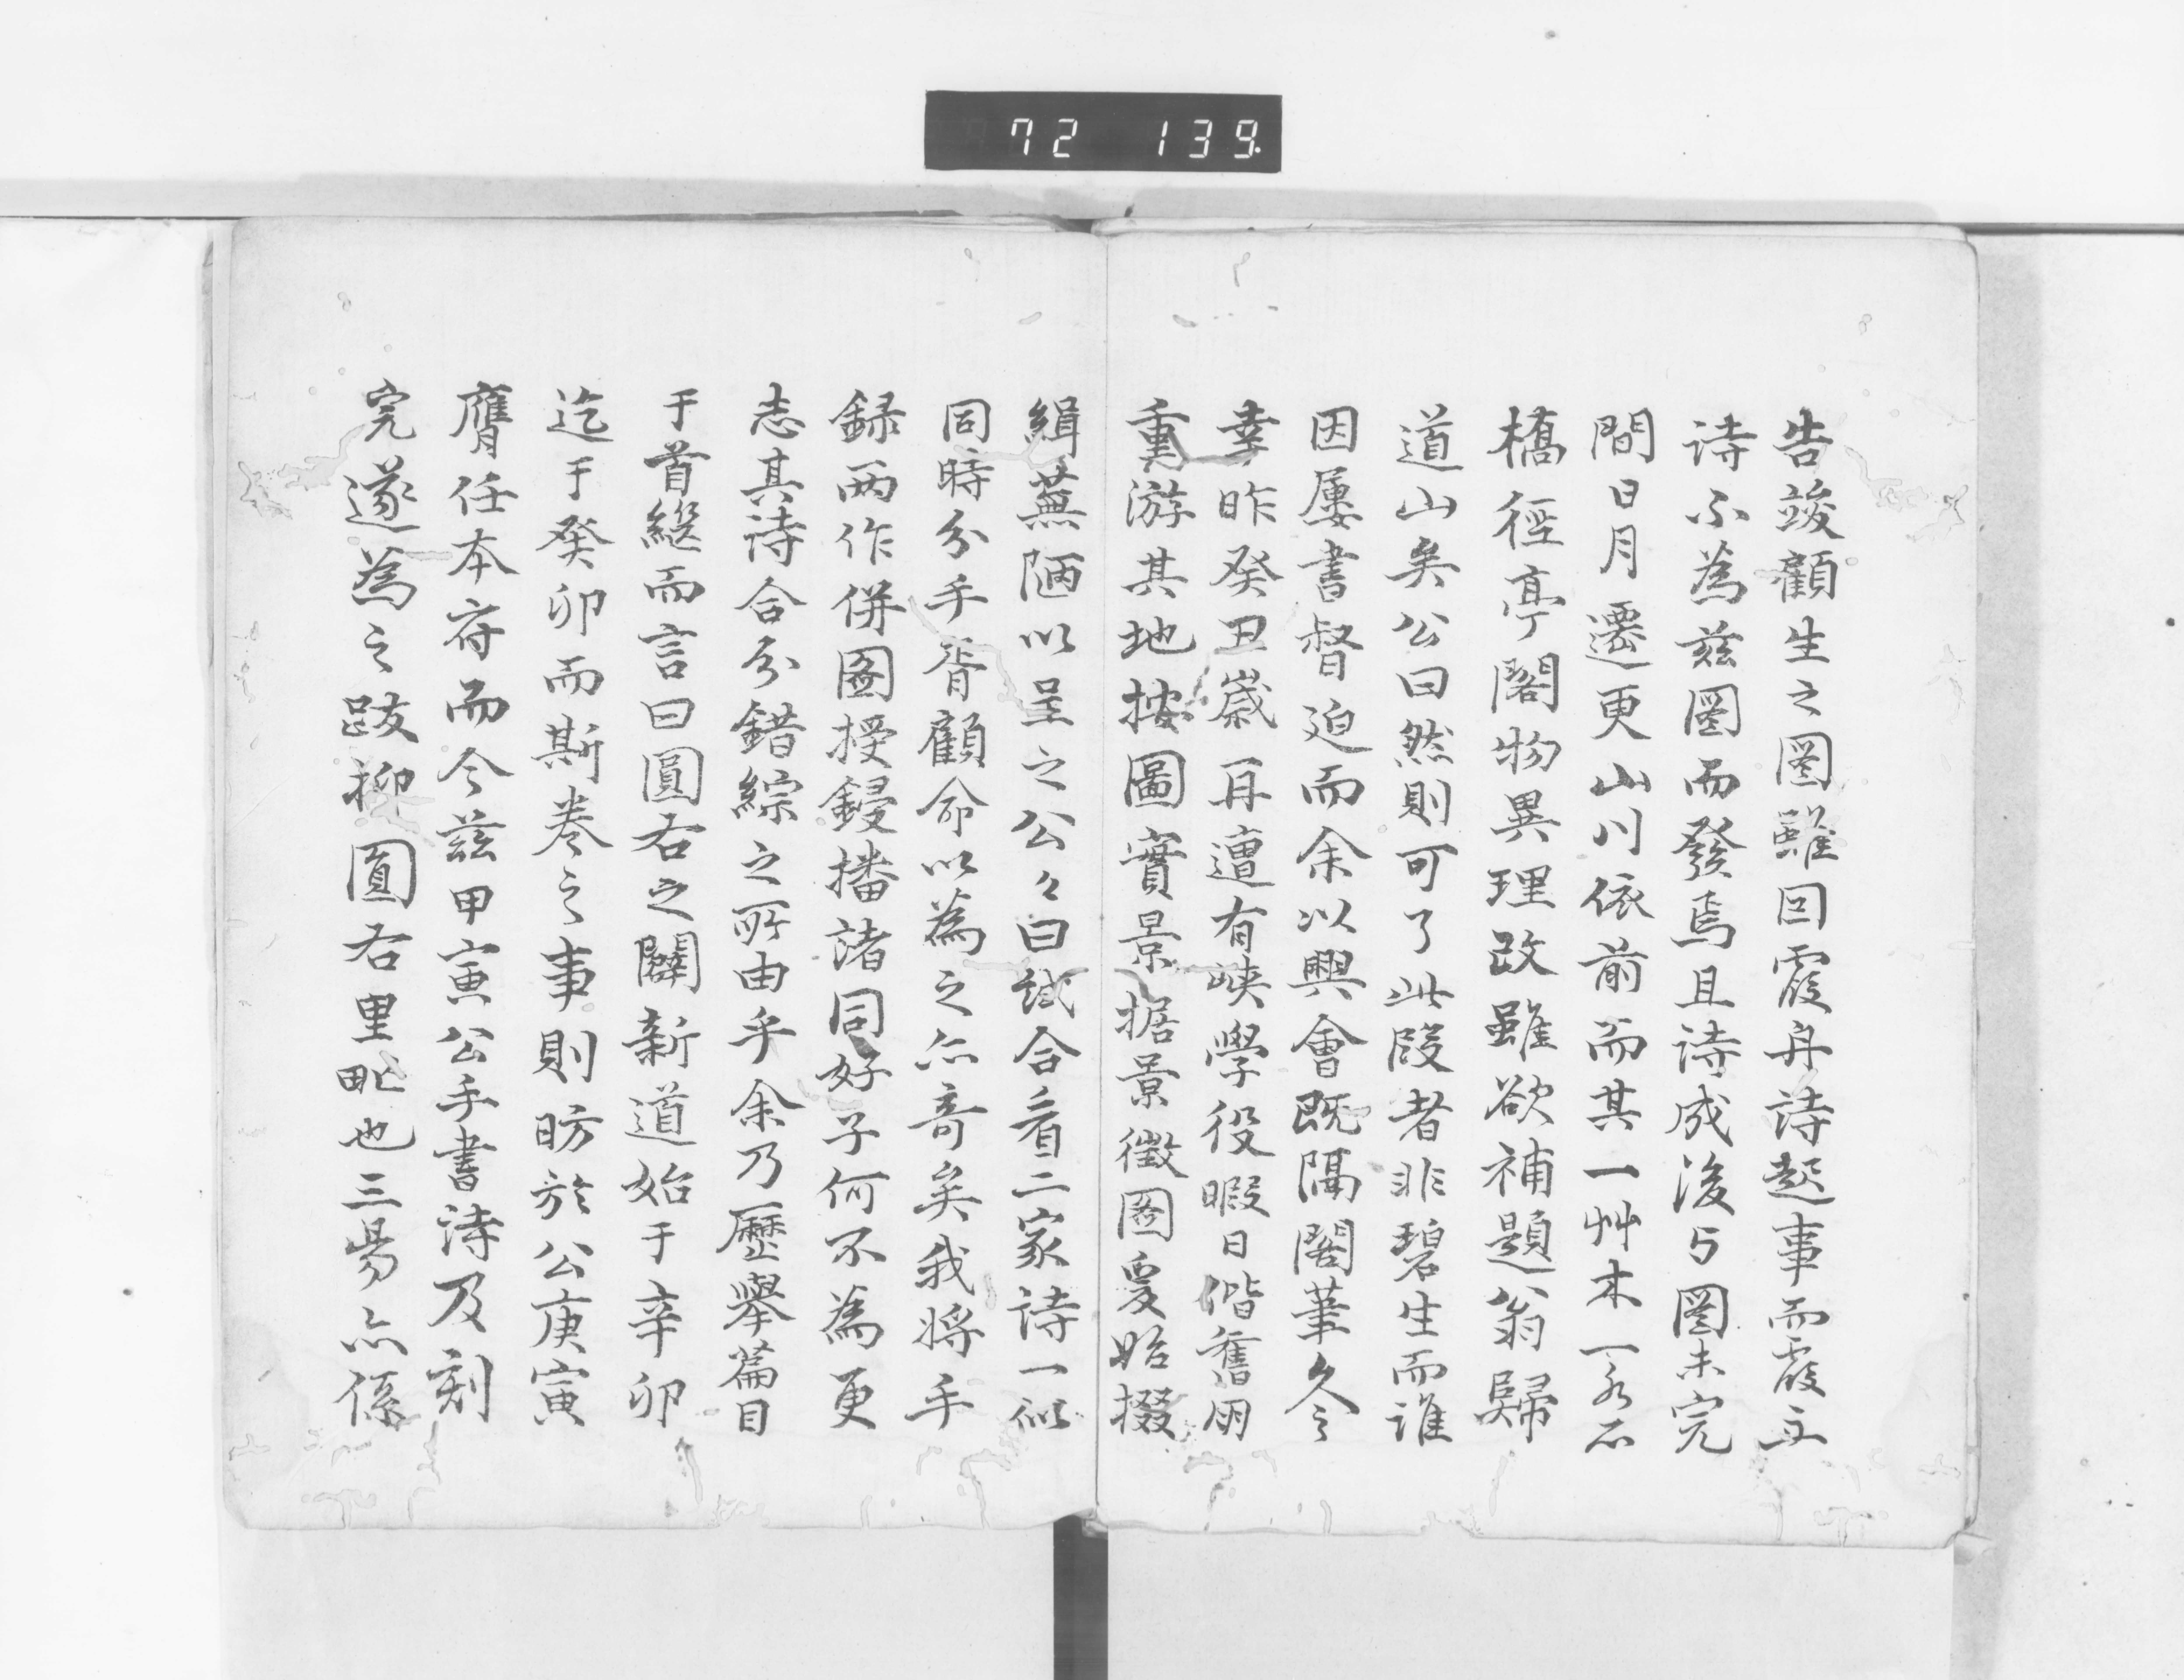 72 139.
告竣顧生之圖雖因霞舟詩起事而霞
詩不為茲圖而發焉且詩成後与圖未完
間日月遷更山川依前而其一艸木一石
橋徑亭閣物異理改雖欲補題翁歸
道山矣公曰然則可了此段者非碧生而誰
因屢書督迫而余以興會既隔閣筆久之
幸昨癸丑歲再遭有峽學役暇日偕舊朋
重游其地按圖實景据景徵圖爰始掇
緝蕪陋以呈之公々曰試合看二家詩一似
同時分手胥顧命以為之亦奇矣我將手
録兩作併圖授鋟播諸同好子何不為更
志其詩合分錯綜之所由乎余乃歷舉篇目
于首継而言曰圓右之闢新道始于辛卯
迄于癸卯而斯卷之事則昉於公庚寅
膺任本府而今茲甲寅公手書詩及刻
完遂為之跋抑圓右里毗也三易亦係